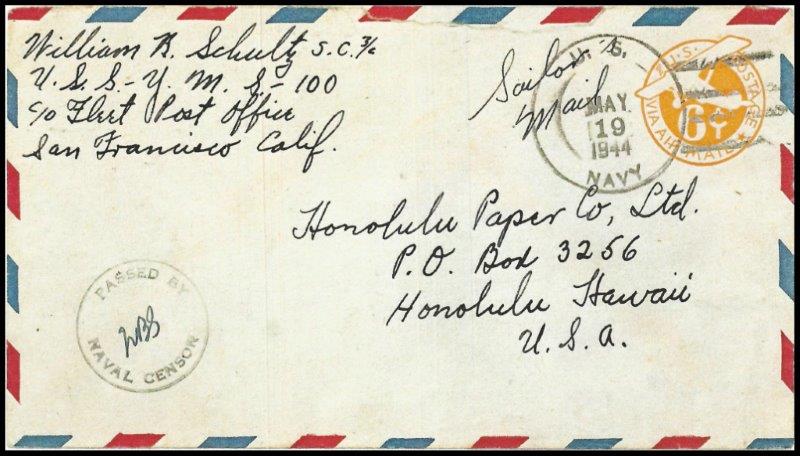 William B. Schultz S.C. 3/c
U.S.S.-Y.M.S-100
c/o Fleet Post Office
San Francisco Calif.
Sailor's
Mail
U.S.
MAY
19
1944
NAVY
U.S. POSTAGE
6¢
VIA AIR MAIL
Honolulu Paper Co, Ltd.
P.O. Box 3256
Honolulu Hawaii
U.S.A.
PASSED BY
WBS
NAVAL CENSOR